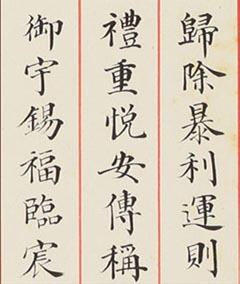 歸除暴利運則
禮重悅安傳稱
御宇錫福臨宸